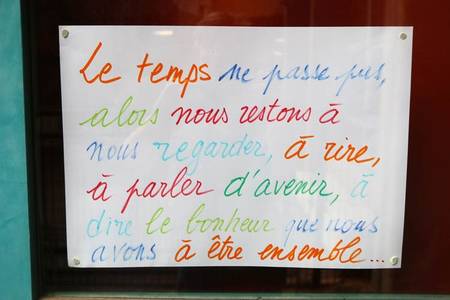 Le temps ne passe pas,
alors nous restons à
nous regarder, à rire,
à parler d'avenir, à
dire le bonheur que nous
avons à être ensemble...